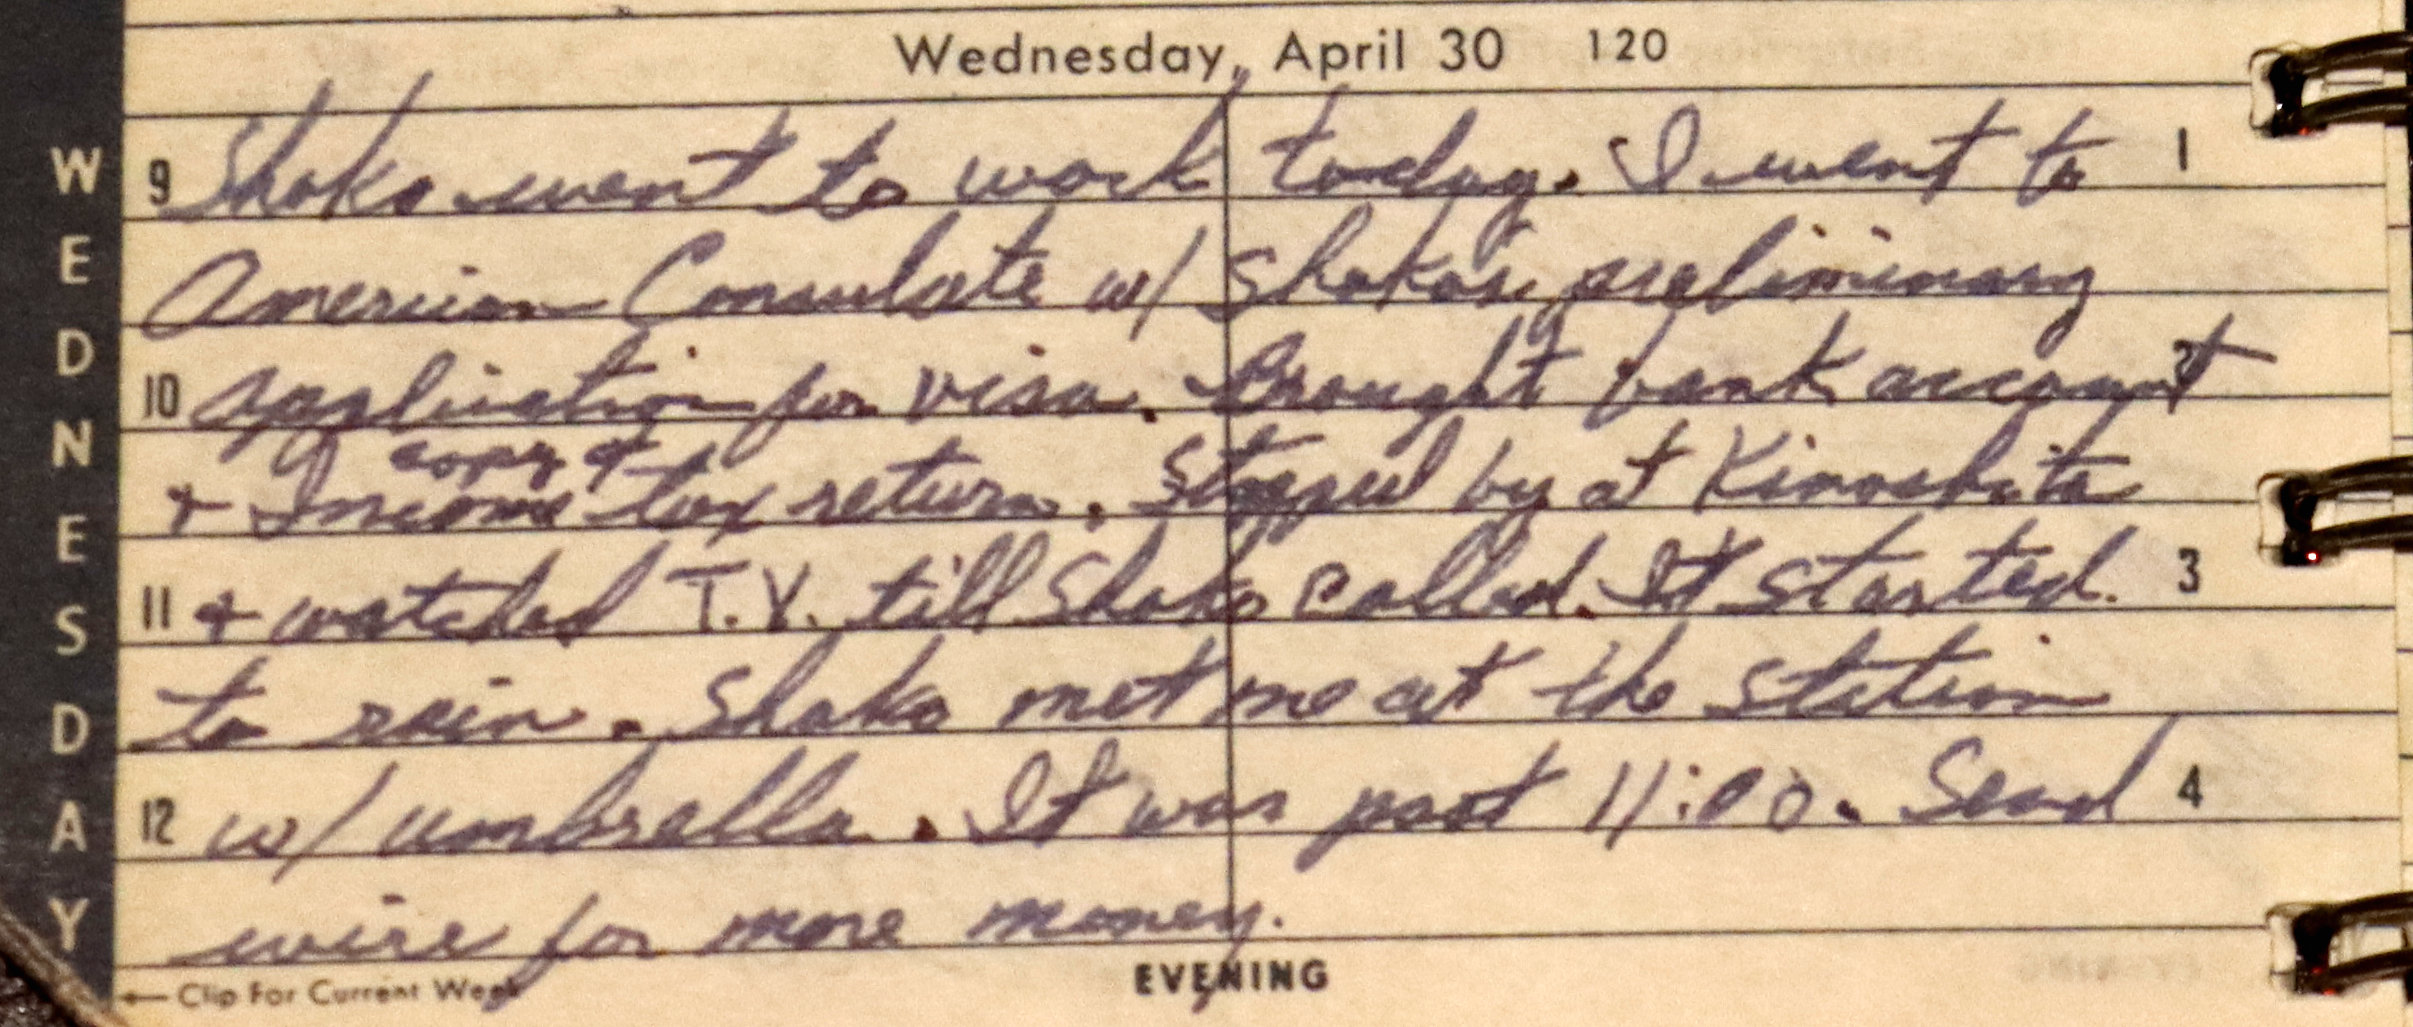 Wednesday, April 30 120
WEDNESDAY
9 Shoko went to work today. I went to 1
American Consulate w/ Shoko's preliminary
10 application for visa. Brought bank account 2
copy of
+ Income tax return. Stopped by at Kinoshita
11 + watched T.V. till Shoko called. It started 3
to rain. Shoko met me at the station
12 w/ umbrella. It was past 11:00. Send 4
wire for more money.
EVENING
←Clip For Current Week